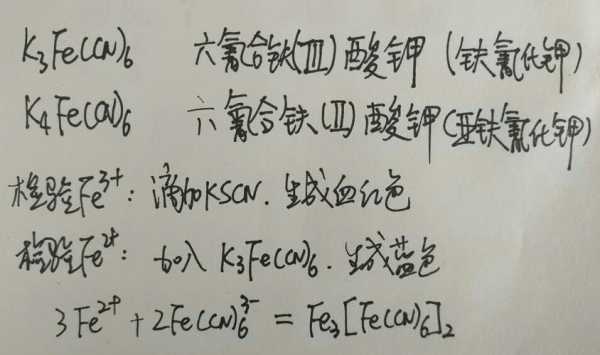 K₃Fe(CN)₆ 六氰合铁(III)酸钾 (铁氰化钾)
K₄Fe(CN)₆ 六氰合铁(II)酸钾(亚铁氰化钾)
检验Fe³⁺: 滴加KSCN. 生成血红色
检验Fe²⁺: 加入 K₃Fe(CN)₆. 生成蓝色
3Fe²⁺ + 2Fe(CN)₆³⁻ = Fe₃[Fe(CN)₆]₂